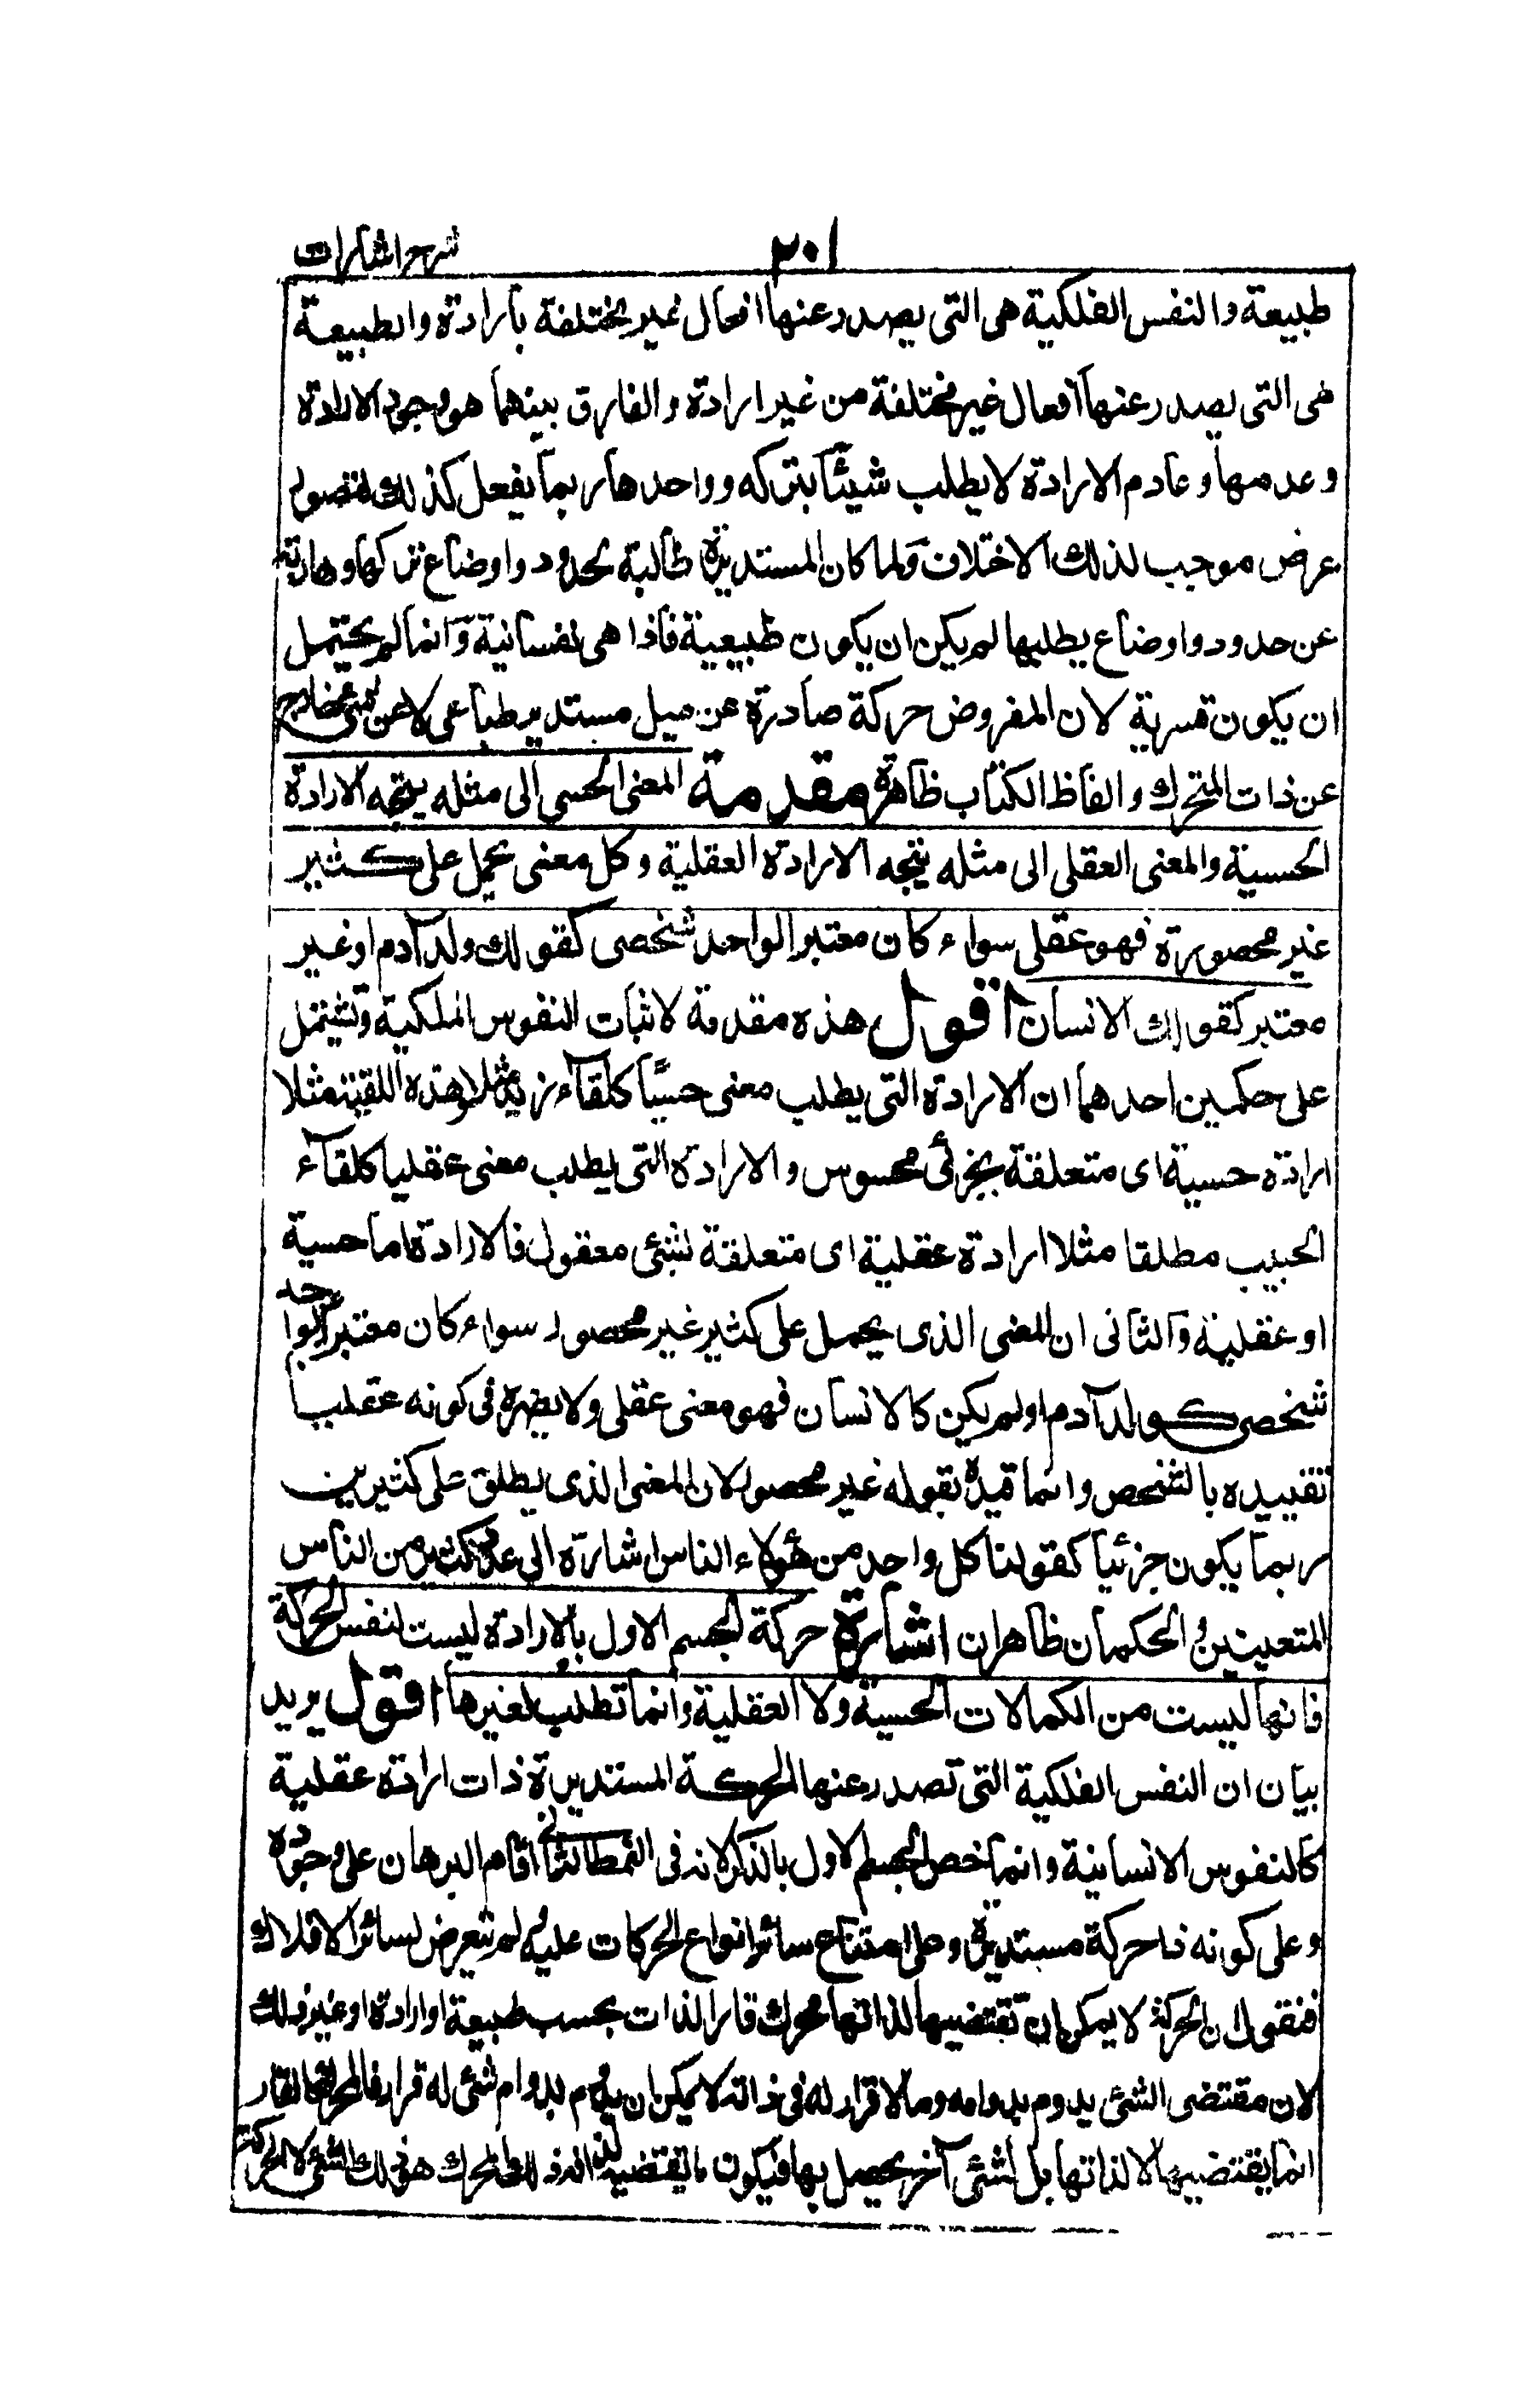 شرح اشارات
٢٠١
طبيعة والنفس الفلكية هى التى يصدر عنها افعال غير مختلفة بارادة والطبيعة
هى التى يصدر عنها افعال غير مختلفة من غير ارادة والفارق بينهما هو وجود الارادة
وعدمها وعادم الارادة لا يطلب شيئا بتركه وواحدها ربما يفعل كذلك لتصور
عرض موجب لذلك الاختلاف ولما كان المستديرة طالبة لحدود واوضاع تتركها وهاربة
عن حدود واوضاع يطلبها لم يكن ان يكون طبيعية فاذا هى نفسانية وانما لم يحتمل
ان يكون قسرية لان المفروض حركة صادرة عن ميل مستدير طباعى لا عن شئ خارج
عن ذات المتحرك والفاظ الكتاب ظاهرة مقدمة المعنى الحسى الى مثله يتجه الارادة
الحسية والمعنى العقلى الى مثله يتجه الارادة العقلية وكل معنى يحمل على كثير
غير محصورة فهو عقلى سواء كان معتبرا لواحد شخصى كقولك ولد آدم او غير
معتبر كقولك الانسان اقول هذه مقدمة لاثبات النفوس الفلكية وتشتمل
على حكمين احدهما ان الارادة التى يطلب معنى حسيا كلقاء زيد مثلا وهذه اللقية مثلا
ارادة حسية اى متعلقة بجزئى محسوس والارادة التى يطلب معنى عقليا كلقاء
الحبيب مطلقا مثلا ارادة عقلية اى متعلقة بشئ معقول فالارادة اما حسية
او عقلية والثانى ان المعنى الذى يحمل على كثير غير محصور سواء كان معتبرا لواحد
شخصى كولد آدم او لم يكن كالانسان فهو معنى عقلى ولا يضره فى كونه عقليا
تقييده بالتشخص وانما قيده بقوله غير محصور لان المعنى الذى يطلق على كثيرين
ربما يكون جزئيا كقولنا كل واحد من هؤلاء الناس اشارة الى عدد كثير من الناس
المتعينين والحكمان ظاهران اشارة حركة الجسم الاول بالارادة ليست لنفس الحركة
فانها ليست من الكمالات الحسية ولا العقلية وانما تطلب لغيرها اقول يريد
بيان ان النفس الفلكية التى تصدر عنها الحركة المستديرة ذات ارادة عقلية
كالنفوس الانسانية وانما خص الجسم الاول بالذكر لانه فى النمط الثانى اقام البرهان على وجوده
وعلى كونه ذا حركة مستديرة وعلى امتناع سائر انواع الحركات عليه ولم يتعرض لسائر الافلاك
فنقول ان الحركة لا يمكن ان تقتضيها لذاتها محرك قار الذات بحسب طبيعة او ارادة او غير ذلك
لان مقتضى الشئ يدوم بدوامه وما لا قرار له فى ذاته لا يمكن ان يدوم بدوام شئ له قرار فالمحرك القار
انما يقتضيها لا لذاتها بل لشئ آخر يحصل بها فيكون ما يقتضيه لذاته ذلك المحرك هو ذلك الشئ لا الحركة